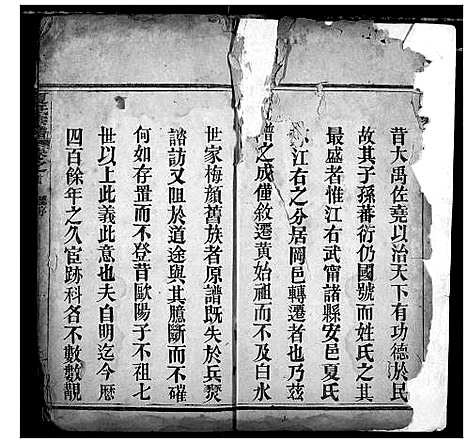 昔大禹佐堯以治天下有功德於民
故其子孫蕃衍仍國號而姓氏之其
最盛者惟江右武甯諸縣安邑夏氏
江右之分居岡邑轉遷者也乃茲
譜之成僅敘遷黄始祖而不及白水
世家梅顏舊族者原譜既失於兵燹
諮訪又阻於道途與其臆斷而不確
何如存置而不登昔歐陽子不祖七
世以上此義此意也夫自明迄今歷
四百餘年之久宦跡科名不數數覯